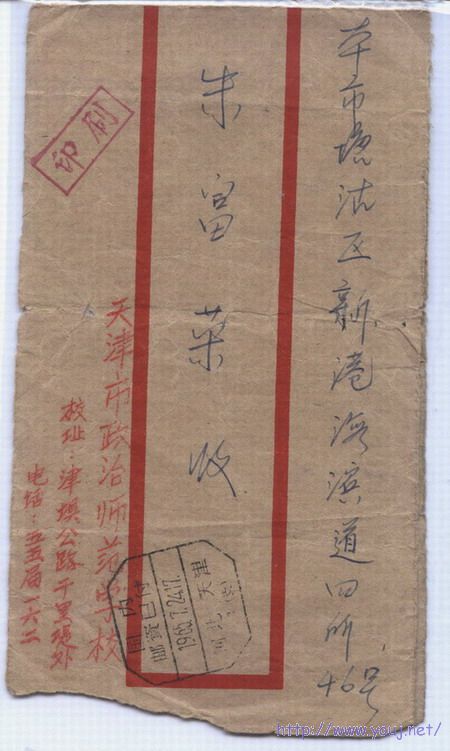 本市塘沽区新港海滨道四所46号
朱富荣 收
印刷
天津市政治师范学校
校址：津塘公路千里堤外
电话：五五局一六二
国内
邮资已付
1965.7.24.17.
河北
天津
http://www.youj.net/